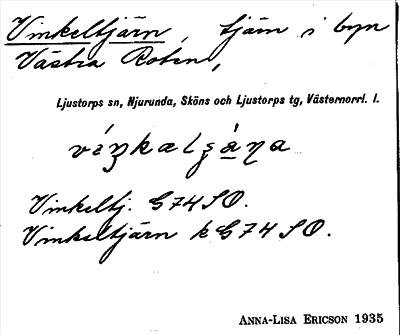 Vinkeltjärn, tjärn i byn
Västra Roten,
Ljustorps sn, Njurunda, Sköns och Ljustorps tg, Västernorrl. l.
Vinkeltj. G74SO.
Vinkeltjärn k G74SO.
ANNA-LISA ERICSON 1935